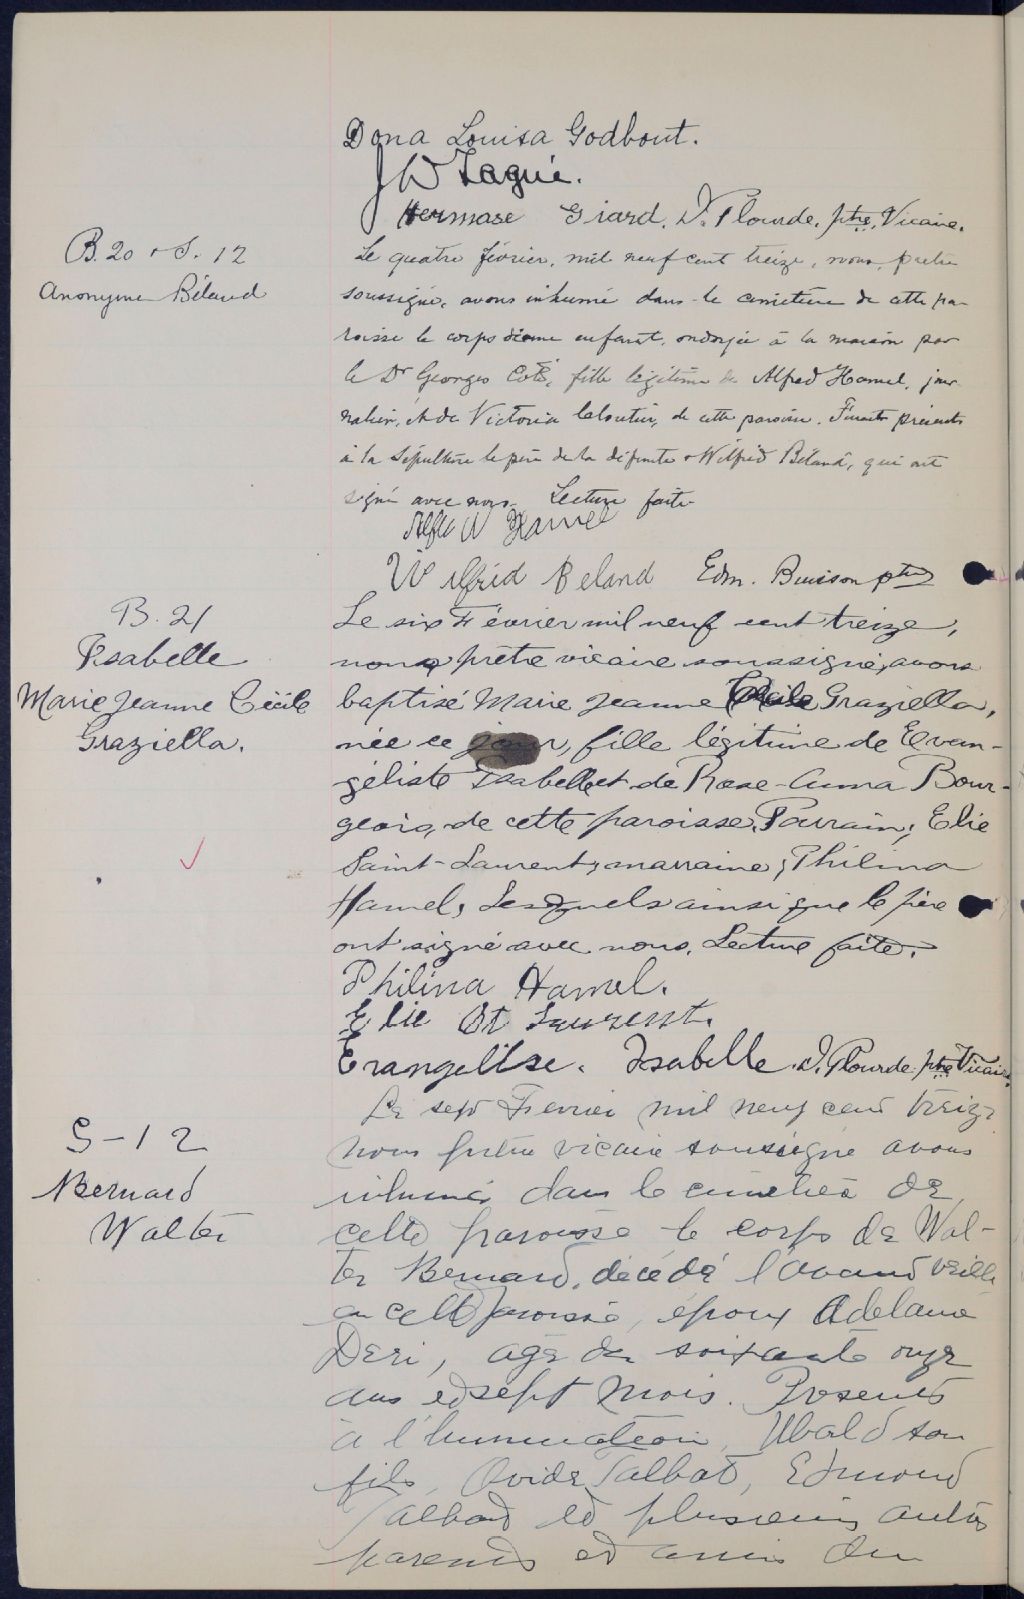 Dona Louisa Godbout.
J W Lagué.
Hermase Giard. D. Plourde, ptre, Vicaire.
B. 20 & S. 12
Anonyme Béland
Le quatre février, mil neuf cent treize, nous, prêtre
soussigné, avons inhumé dans le cimetière de cette pa-
roisse le corps d'une enfant, ondoyée à la maison par
le Dr Georges Coté, fille légitime de Alfred Hamel, jour-
nalier, et de Victoria, de cette paroisse. Furent présents
à la sépulture le père de la défunte & Wilfrid Béland, qui ont
signé avec nous. Lecture faite
Alfred Hamel
Wilfrid Beland Edm. Buisson ptre
B. 21
Isabelle
Marie Jeanne Cécile
Graziella.
Le six Février mil neuf cent treize,
nous prêtre vicaire soussigné, avons
baptisé Marie Jeanne Cécile Graziella,
née ce jour, fille légitime de Evan-
géliste Isabelle et de Rose-Anna Bour-
geois, de cette paroisse. Parrain, Elie
Saint-Laurent, marraine, Philina
Hamel, Lesquels ainsi que le père
ont signé avec nous. Lecture faite.
Philina Hamel.
Elie St Laurent.
Evangelise. Isabelle. D. Plourde ptre Vicaire.
S-12
Bernard
Walter
Le sept Fevrier mil neuf cent treize
nous pretre vicaire soussigné avons
inhumé dans le cimetière de
cette paroisse le corps de Wal-
ter Bernard, décédé l'avant veille
en cette paroisse, époux Adelane
Deri, agé de soixante onze
ans et sept mois. Presents
à l'inhumation, Ubald son
fils, Ovide Talbot, Edmond
Talbot et plusieurs autres
parents et amis du